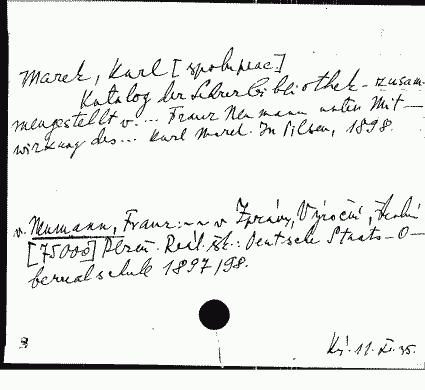 Marek, Karl [spolupрас.]
Katalog der Lehrerbibliothek - zusam-
mengestellt v. ... Franz Neumann unter Mit-
wirkung des ... Karl Marek. In Pilsen, 1898.
v. Neumann, Franz: - n v Zprávy, Výroční, školní
[75000] Plzeň. Reál. šk.: Deutsche Staats-O-
berrealschule 1897/98.
Kř. 11.XI.35.